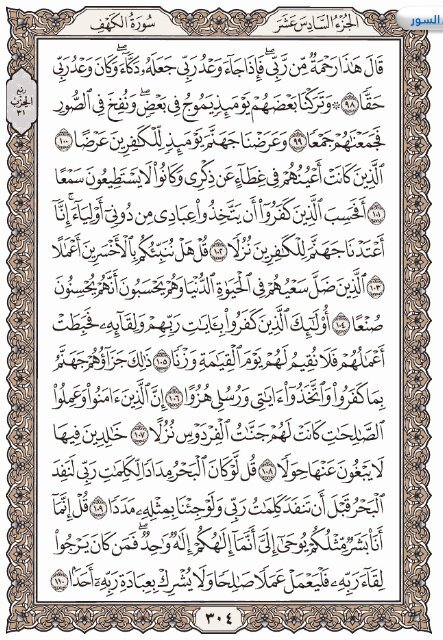 السور
سُورَةُ الكَهْفِ
الجُزْءُ السَّادِسَ عَشَرَ
قَالَ هَٰذَا رَحْمَةٌ مِّن رَّبِّي ۖ فَإِذَا جَاءَ وَعْدُ رَبِّي جَعَلَهُ دَكَّاءَ ۖ وَكَانَ وَعْدُ رَبِّي
حَقًّا ٩٨ ۞ وَتَرَكْنَا بَعْضَهُمْ يَوْمَئِذٍ يَمُوجُ فِي بَعْضٍ ۖ وَنُفِخَ فِي الصُّورِ
فَجَمَعْنَاهُمْ جَمْعًا ٩٩ وَعَرَضْنَا جَهَنَّمَ يَوْمَئِذٍ لِّلْكَافِرِينَ عَرْضًا ١٠٠
الَّذِينَ كَانَتْ أَعْيُنُهُمْ فِي غِطَاءٍ عَن ذِكْرِي وَكَانُوا لَا يَسْتَطِيعُونَ سَمْعًا
١٠١ أَفَحَسِبَ الَّذِينَ كَفَرُوا أَن يَتَّخِذُوا عِبَادِي مِن دُونِي أَوْلِيَاءَ ۚ إِنَّا
أَعْتَدْنَا جَهَنَّمَ لِلْكَافِرِينَ نُزُلًا ١٠٢ قُلْ هَلْ نُنَبِّئُكُم بِالْأَخْسَرِينَ أَعْمَالًا
١٠٣ الَّذِينَ ضَلَّ سَعْيُهُمْ فِي الْحَيَاةِ الدُّنْيَا وَهُمْ يَحْسَبُونَ أَنَّهُمْ يُحْسِنُونَ
صُنْعًا ١٠٤ أُولَٰئِكَ الَّذِينَ كَفَرُوا بِآيَاتِ رَبِّهِمْ وَلِقَائِهِ فَحَبِطَتْ
أَعْمَالُهُمْ فَلَا نُقِيمُ لَهُمْ يَوْمَ الْقِيَامَةِ وَزْنًا ١٠٥ ذَٰلِكَ جَزَاؤُهُمْ جَهَنَّمُ
بِمَا كَفَرُوا وَاتَّخَذُوا آيَاتِي وَرُسُلِي هُزُوًا ١٠٦ إِنَّ الَّذِينَ آمَنُوا وَعَمِلُوا
الصَّالِحَاتِ كَانَتْ لَهُمْ جَنَّاتُ الْفِرْدَوْسِ نُزُلًا ١٠٧ خَالِدِينَ فِيهَا
لَا يَبْغُونَ عَنْهَا حِوَلًا ١٠٨ قُل لَّوْ كَانَ الْبَحْرُ مِدَادًا لِّكَلِمَاتِ رَبِّي لَنَفِدَ
الْبَحْرُ قَبْلَ أَن تَنفَدَ كَلِمَاتُ رَبِّي وَلَوْ جِئْنَا بِمِثْلِهِ مَدَدًا ١٠٩ قُلْ إِنَّمَا
أَنَا بَشَرٌ مِّثْلُكُمْ يُوحَىٰ إِلَيَّ أَنَّمَا إِلَٰهُكُمْ إِلَٰهٌ وَاحِدٌ ۖ فَمَن كَانَ يَرْجُو
لِقَاءَ رَبِّهِ فَلْيَعْمَلْ عَمَلًا صَالِحًا وَلَا يُشْرِكْ بِعِبَادَةِ رَبِّهِ أَحَدًا ١١٠
ربع
الحزب
٣١
٣٠٤